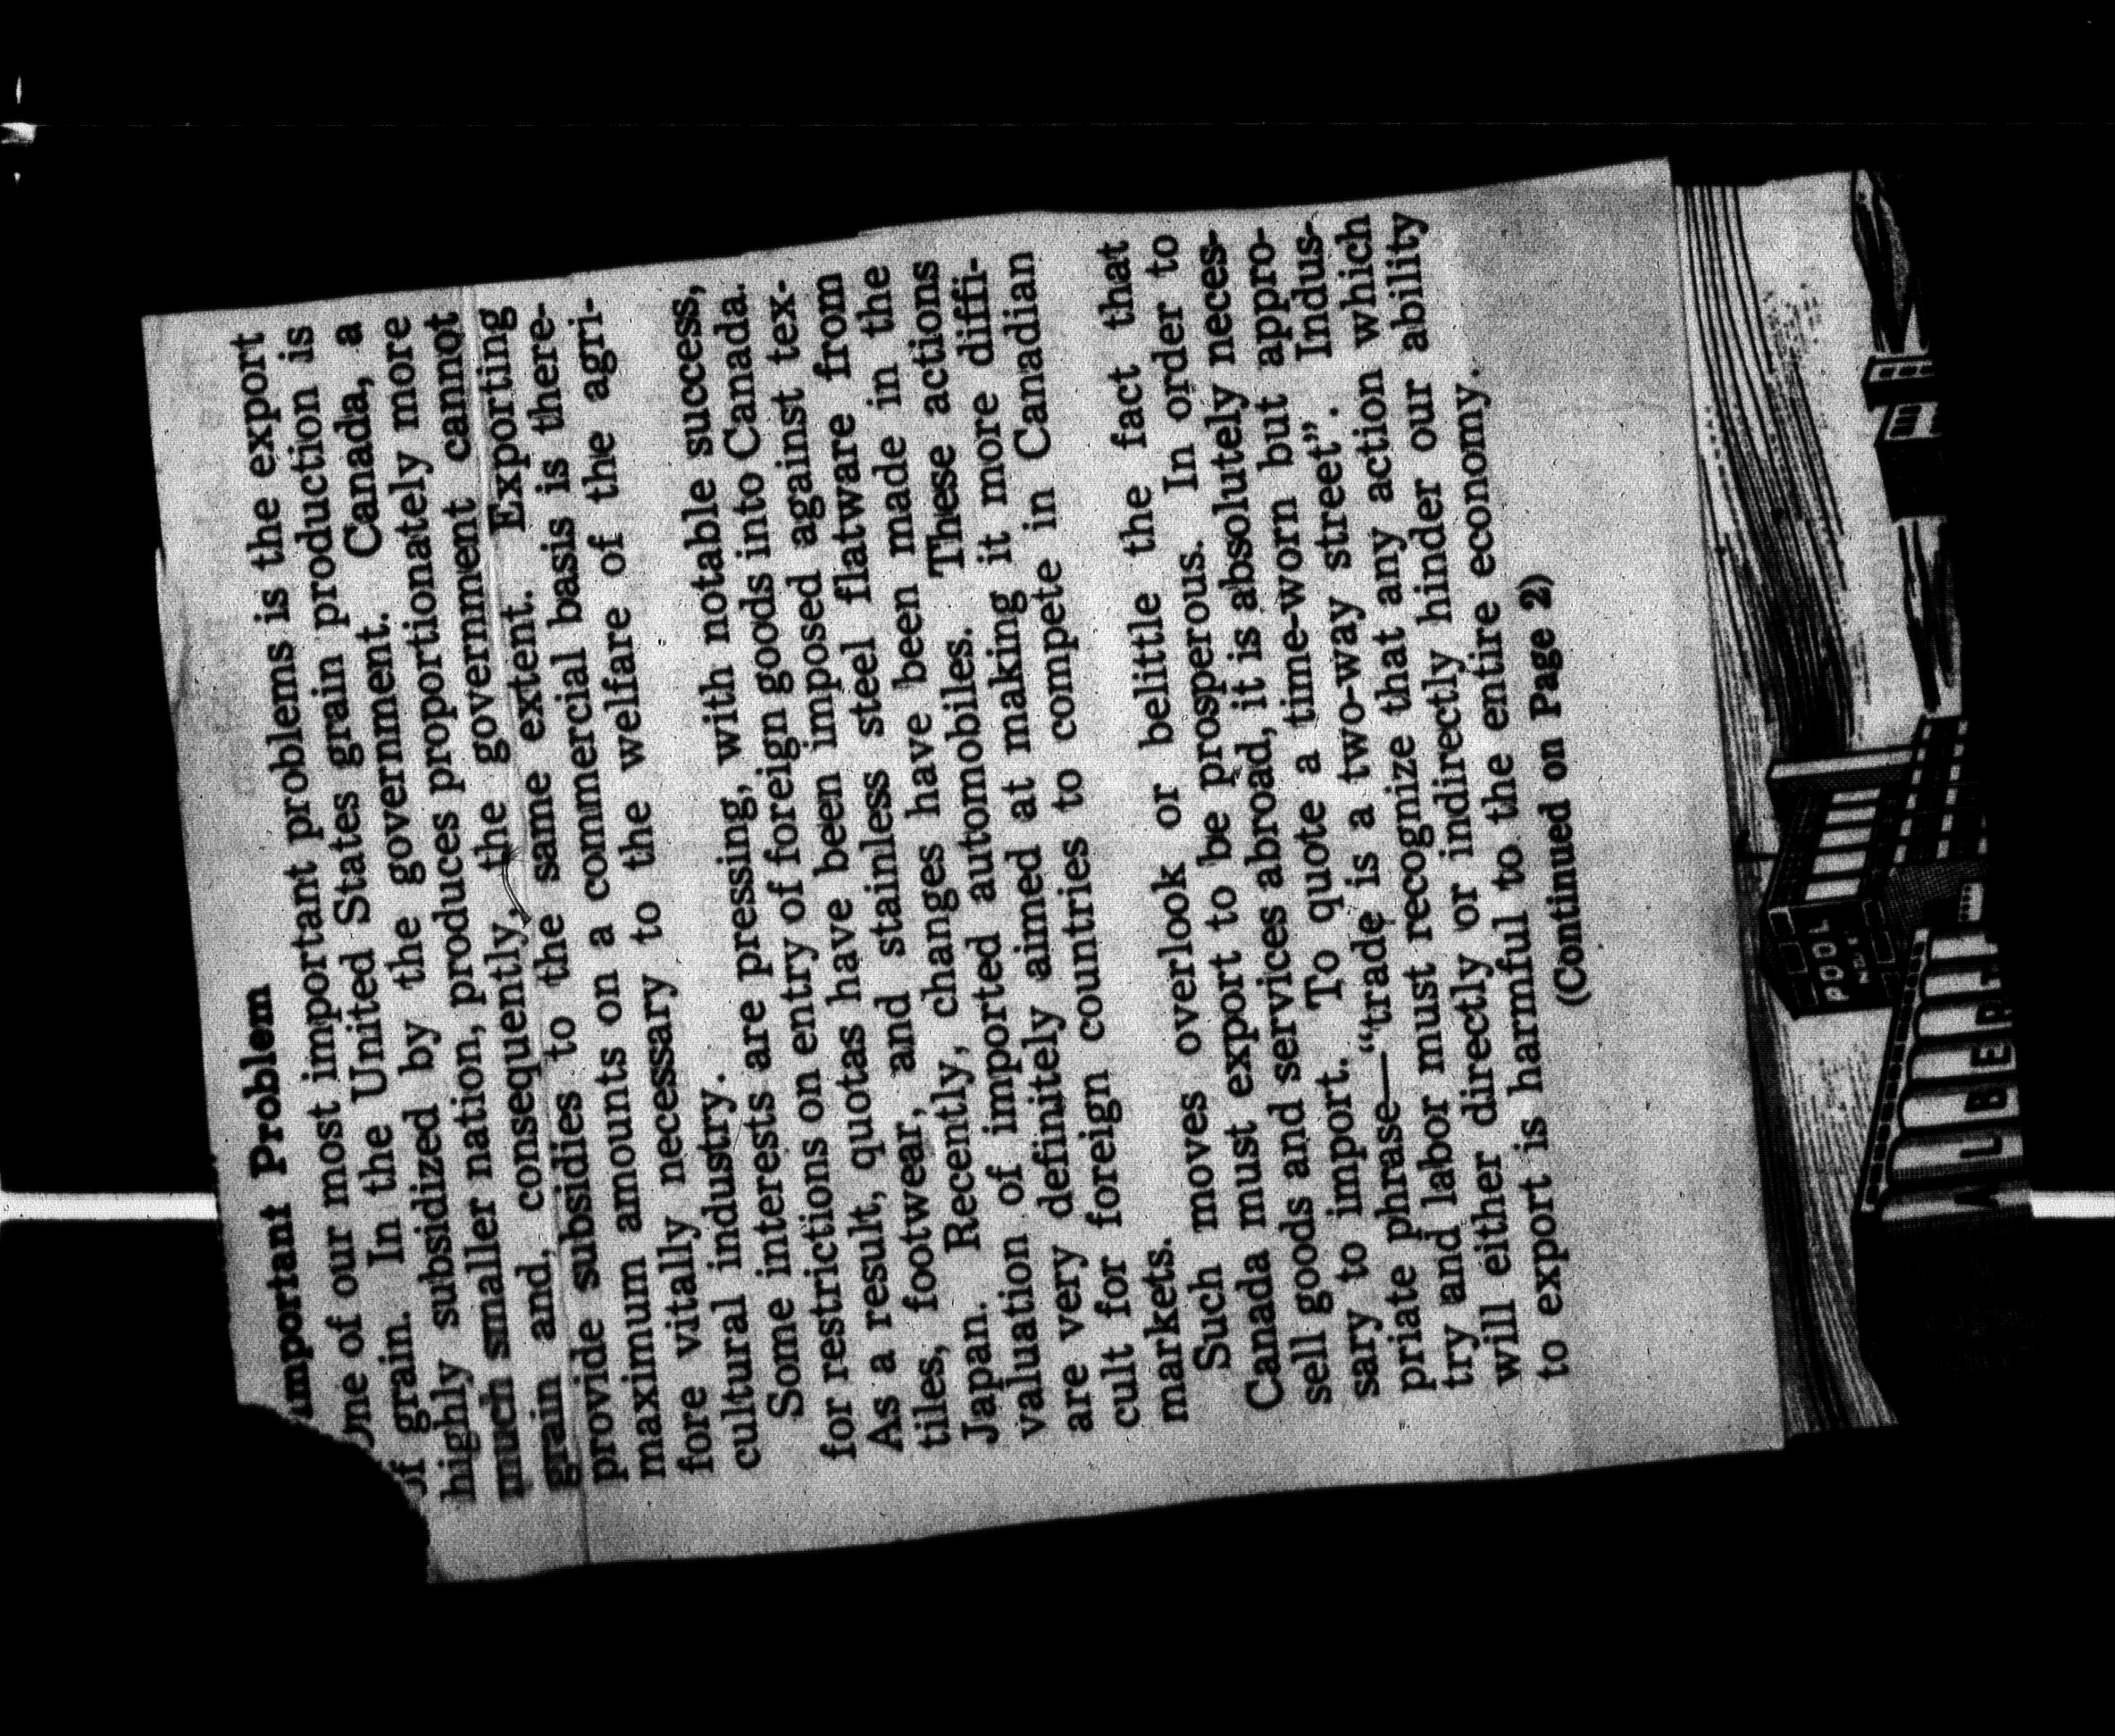 Important Problem
One of our most important problems is the export
of grain. In the United States grain production is
highly subsidized by the government. Canada, a
much smaller nation, produces proportionately more
grain and, consequently, the government cannot
provide subsidies to the same extent. Exporting
maximum amounts on a commercial basis is there-
fore vitally necessary to the welfare of the agri-
cultural industry.
Some interests are pressing, with notable success,
for restrictions on entry of foreign goods into Canada.
As a result, quotas have been imposed against tex-
tiles, footwear, and stainless steel flatware from
Japan. Recently, changes have been made in the
valuation of imported automobiles. These actions
are very definitely aimed at making it more diffi-
cult for foreign countries to compete in Canadian
markets.
Such moves overlook or belittle the fact that
Canada must export to be prosperous. In order to
sell goods and services abroad, it is absolutely neces-
sary to import. To quote a time-worn but appro-
priate phrase—“trade is a two-way street”. Indus-
try and labor must recognize that any action which
will either directly or indirectly hinder our ability
to export is harmful to the entire economy.
(Continued on Page 2)
POOL
ALBERT